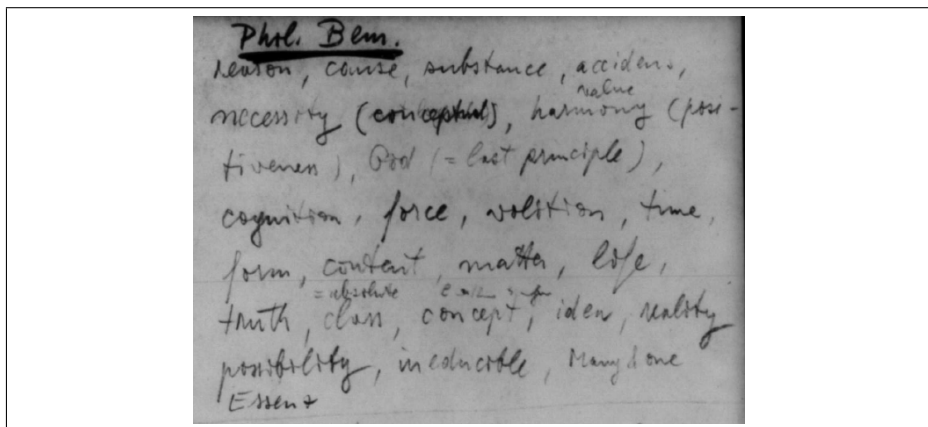 Phil. Bem.
reason, cause, substance, accidens,
value
necessity (conceptual), harmony (posi-
tiveness), God (= last principle),
cognition, force, volition, time,
form, content, matter, life,
= absolute
truth, class, concept, idea, reality
possibility, irreducible, Many & one
Essen